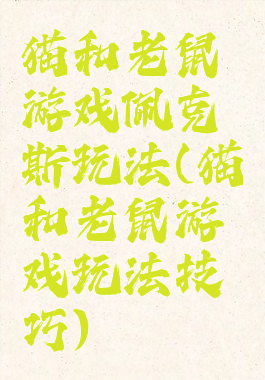 猫和老鼠
游戏佩克
斯玩法(猫
和老鼠游
戏玩法技
巧)